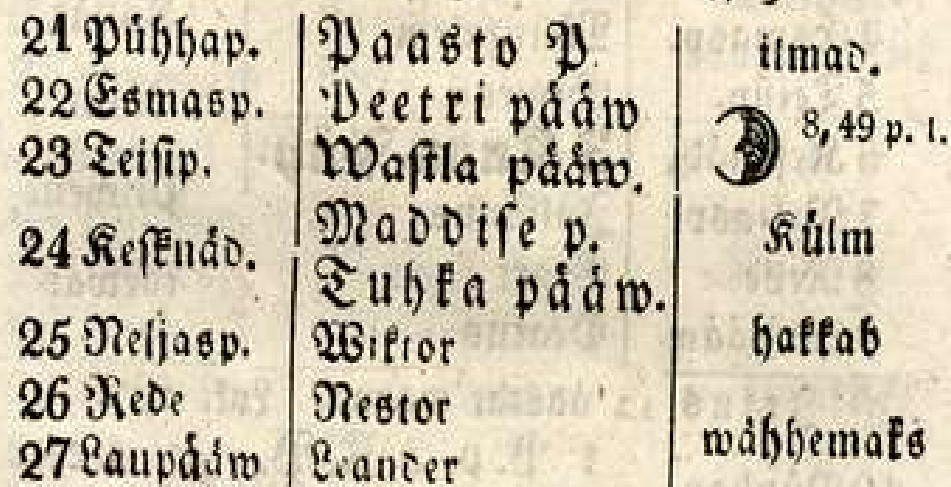 21 Pühhap. Paasto P. ilmad.
22 Esmasp. Peetri pääw
8, 49 p. l.
23 Teisip. Wastla pääw.
Maddise p.
24 Kesknäd. Külm
Tuhka pääw.
25 Neljasp. Wiktor hakkab
26 Rede Nestor
27 Laupääw Leander wähhemaks